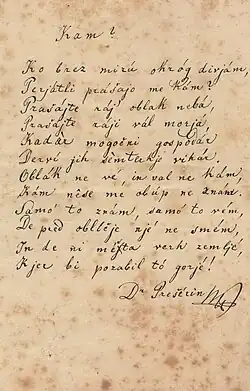 Kam?
Ko brez mirú okróg divjám,
Perjátli prášajo me kám?
Prašajte ráj' oblak nebá,
Prašajte ráji vál morjá,
Kadár mogočni gospodár
Derví jih semtertje vihár.
Oblak ne vé, in val ne kám,
Kám nêse me obúp ne znam.
Samó to znám, samó to vém,
De pred obličje njé ne smém,
In de ni mésta verh zemljé,
Kjer bi pozabil tó gorjé!
Dr Prešérin